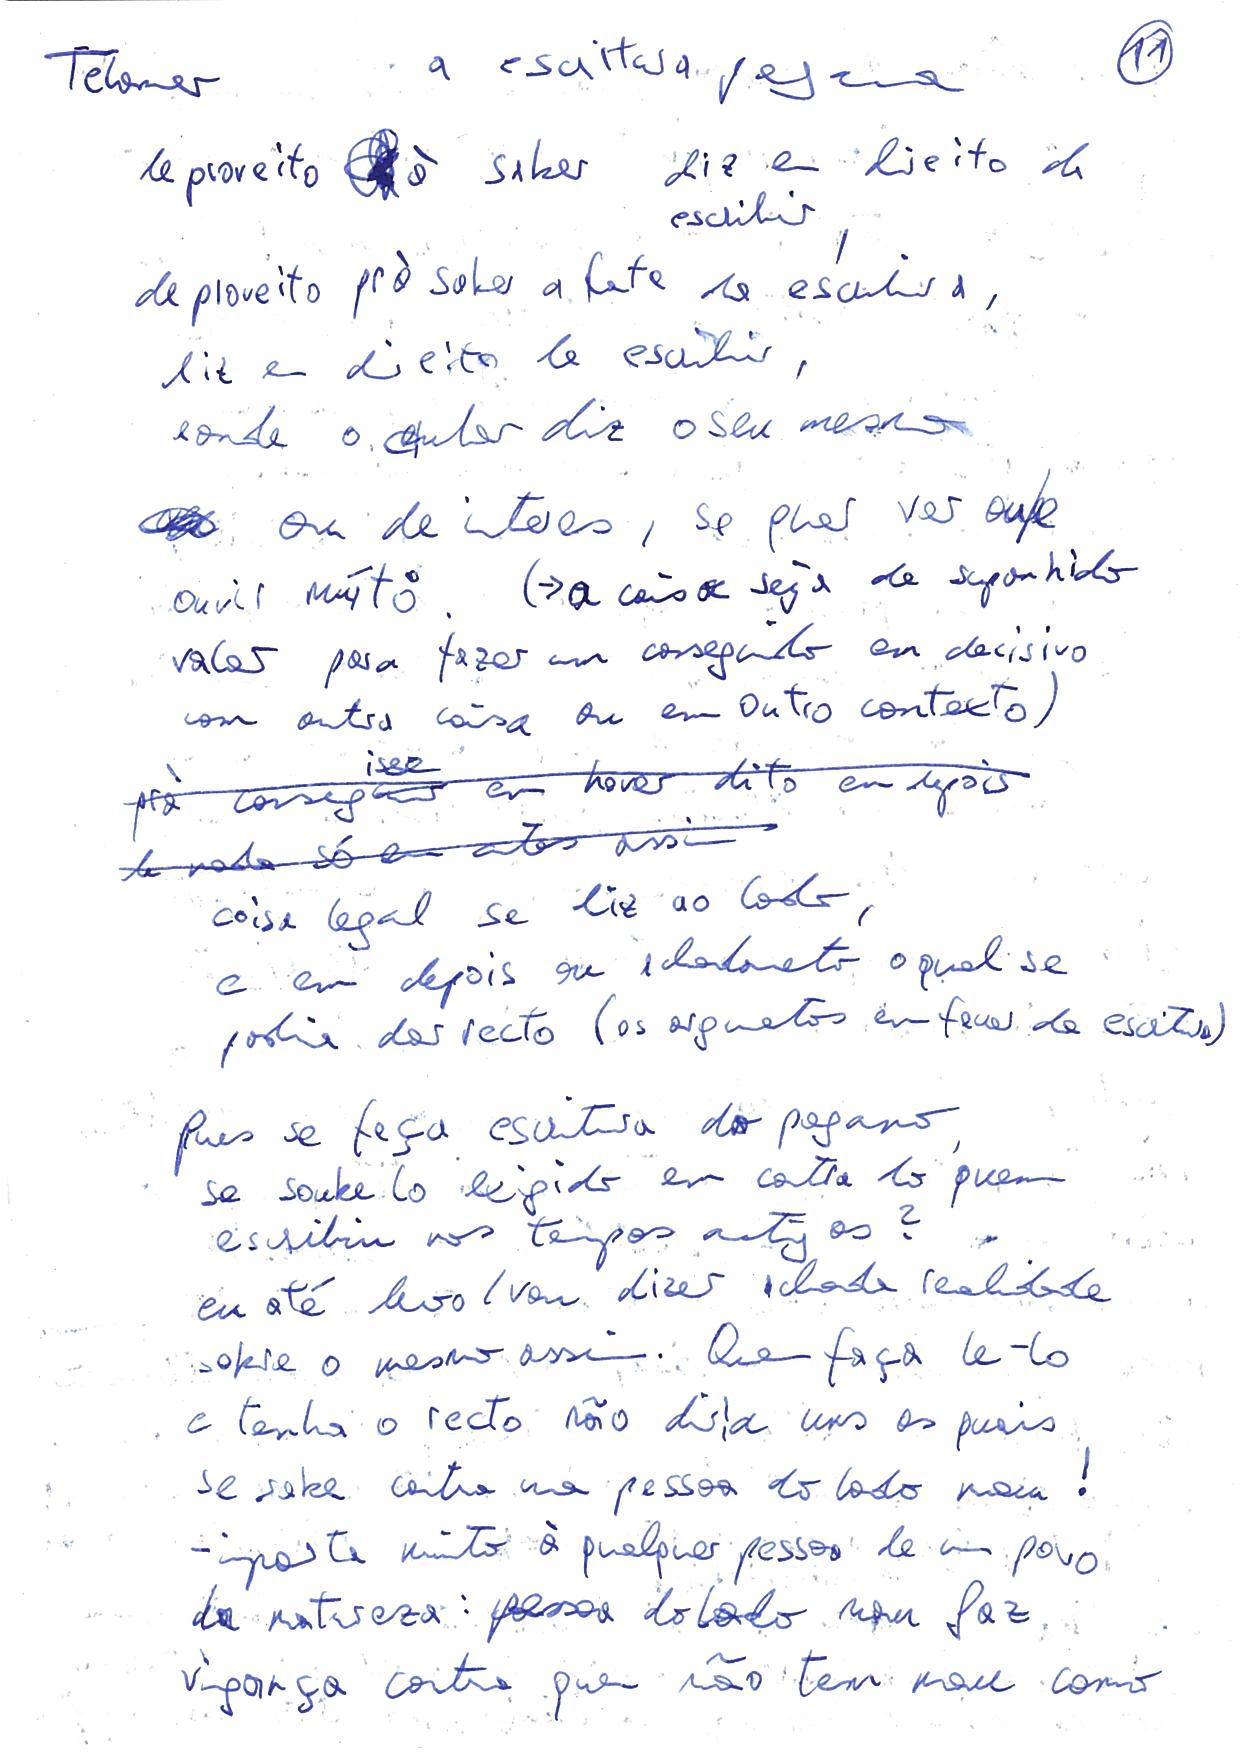 Telomer a escritura pagana 11
de proveito ò saber diz en direito de
escribir,
de proveito prò saber a fate da escritura,
diz en direito de escribir,
onde o autor diz o seu mesmo
ou de interes, se quer ver ou/e
ouvir muito. (→ a coisa seja de suponhido
valor para fazer um conseguido en decisivo
com outra coisa ou em outro contexto)
prà conseguir isso em haver dito em depois
de nada só en antes assim
coisa legal se diz ao lado,
e em depois ou achadamento o qual se
podia dar recto (os argumentos em favor da escritura)
Pues se faça escritura do pagano,
se soube lo exigido em contra do quem
escribiu nos tempos antigos?
eu até levo/vou dizer achada realidade
sobre o mesmo assim. Quem faça le-lo
e tenha o recto não diria uns os quais
se sabe contra uma pessoa do lado mau!
-importa muito à qualquer pessoa de um povo
da natureza: pessoa do lado mau faz
vigança contra quem não tem mau como